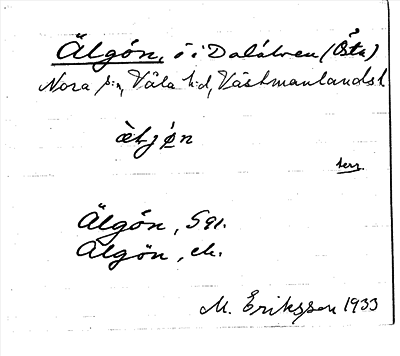 Älgön, ö i Dalälven (Östa)
Nora sn, Våla hd, Västmanlands l
ä̀ljø̀n
terr.
Älgön, Sgs.
Älgön, ek.
M. Eriksson 1933